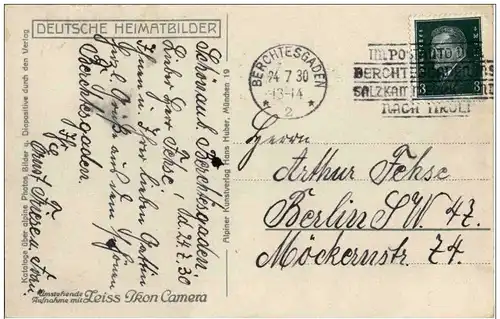 DEUTSCHE HEIMATBILDER
Schönau b. Berchtesgaden,
d. 24.7.30
Lieber Herr Fehse,
Ihnen u. Ihrer lieben Gattin
Grüße aus dem schönen
Berchtesgaden.
Ernst
Umstehende
Aufnahme mit Zeiss Ikon Camera
Kataloge über alpine Photos, Bilder u. Diapositive durch den Verlag
Alpiner Kunstverlag Hans Huber, München 19
BERCHTESGADEN
24.7.30
13-14
2
IM POSTAUTO
BERCHTESGADEN
SALZKAM
NACH TIROL!
3
3
Herrn
Arthur Fehse
Berlin SW 47.
Möckernstr. 74.